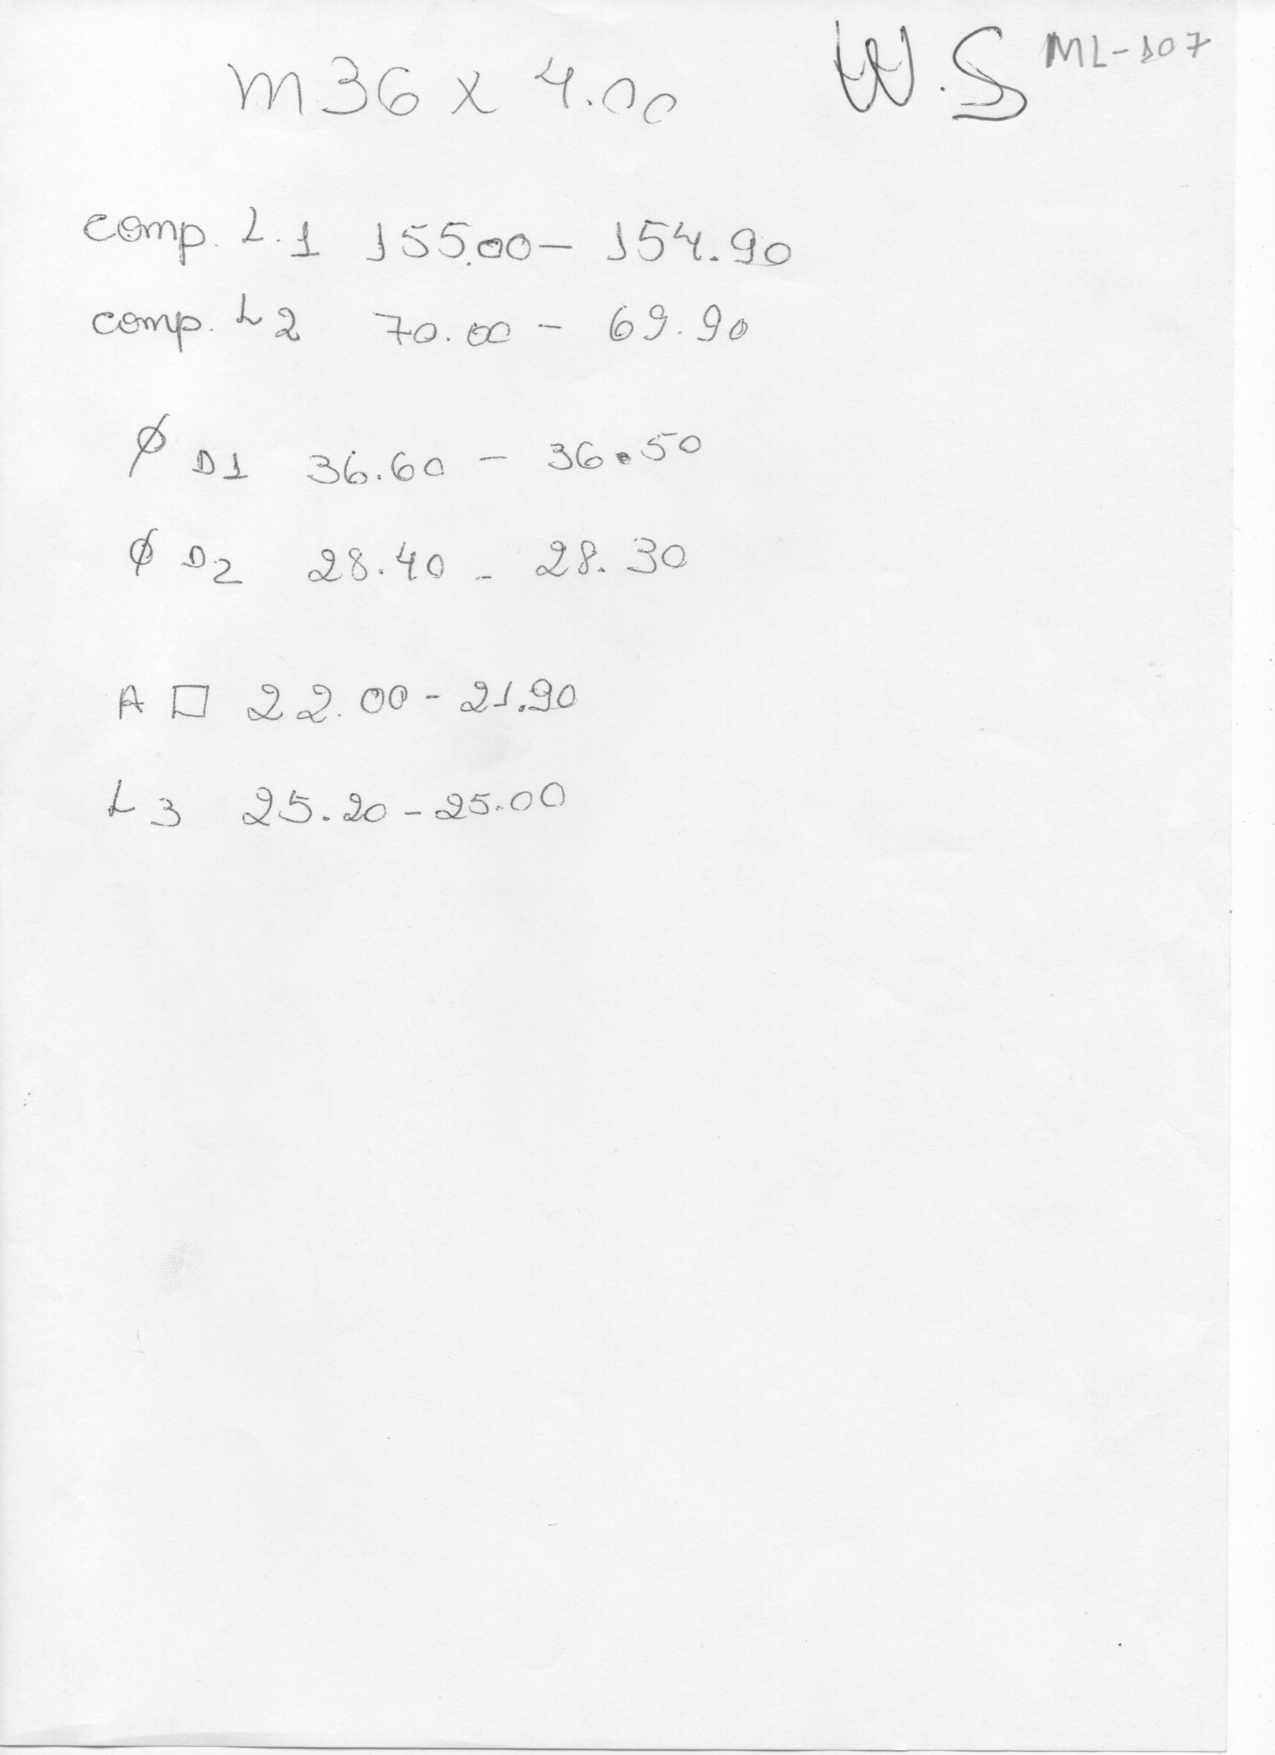 m36 x 4.00 W.S ML-107
comp. L.1 155.00 - 154.90
comp. L2 70.00 - 69.90
Ø D1 36.60 - 36.50
Ø D2 28.40 - 28.30
A □ 22.00 - 21.90
L3 25.20 - 25.00